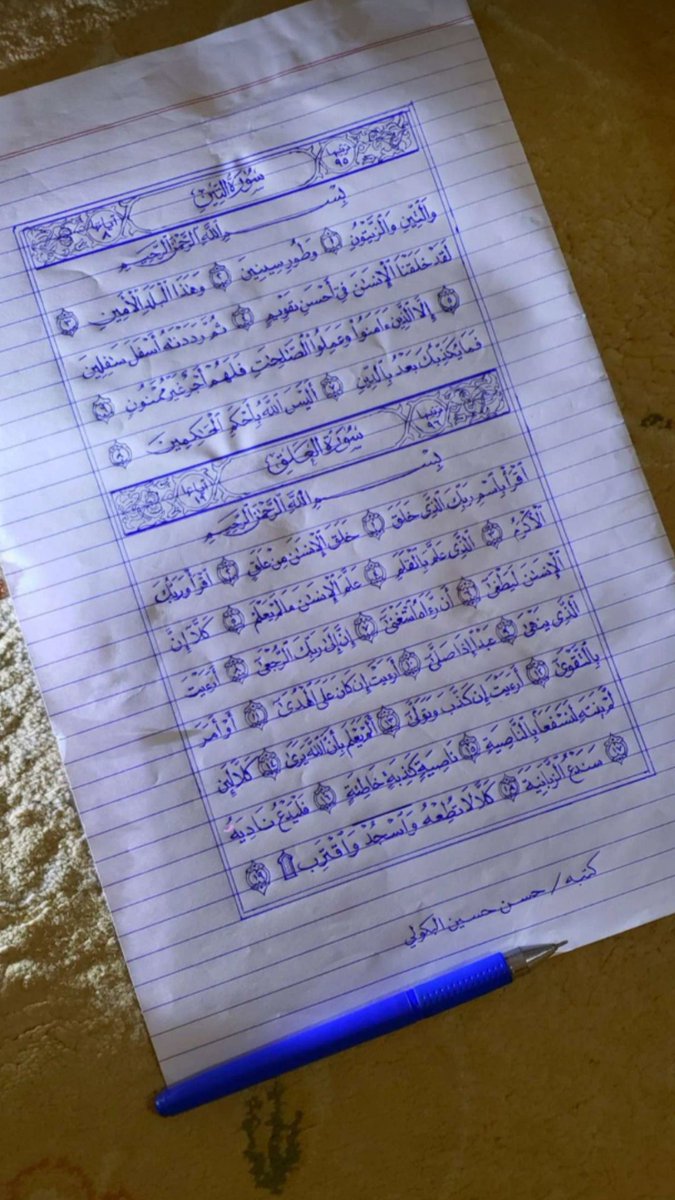 ترتيبها ٩٥ سُورَةُ التِّينِ آياتها ٨
بِسْــــمِ اللَّهِ الرَّحْمَٰنِ الرَّحِيمِ
وَٱلتِّينِ وَٱلزَّيْتُونِ ١ وَطُورِ سِينِينَ ٢ وَهَٰذَا ٱلْبَلَدِ ٱلْأَمِينِ ٣
لَقَدْ خَلَقْنَا ٱلْإِنسَٰنَ فِىٓ أَحْسَنِ تَقْوِيمٍ ٤ ثُمَّ رَدَدْنَٰهُ أَسْفَلَ سَٰفِلِينَ
٥ إِلَّا ٱلَّذِينَ ءَامَنُوا۟ وَعَمِلُوا۟ ٱلصَّٰلِحَٰتِ فَلَهُمْ أَجْرٌ غَيْرُ مَمْنُونٍ ٦
فَمَا يُكَذِّبُكَ بَعْدُ بِٱلدِّينِ ٧ أَلَيْسَ ٱللَّهُ بِأَحْكَمِ ٱلْحَٰكِمِينَ ٨
ترتيبها ٩٦ سُورَةُ العَلَقِ آياتها ١٩
بِسْــــمِ اللَّهِ الرَّحْمَٰنِ الرَّحِيمِ
ٱقْرَأْ بِٱسْمِ رَبِّكَ ٱلَّذِى خَلَقَ ١ خَلَقَ ٱلْإِنسَٰنَ مِنْ عَلَقٍ ٢ ٱقْرَأْ وَرَبُّكَ
ٱلْأَكْرَمُ ٣ ٱلَّذِى عَلَّمَ بِٱلْقَلَمِ ٤ عَلَّمَ ٱلْإِنسَٰنَ مَا لَمْ يَعْلَمْ ٥ كَلَّآ إِنَّ
ٱلْإِنسَٰنَ لَيَطْغَىٰٓ ٦ أَن رَّءَاهُ ٱسْتَغْنَىٰٓ ٧ إِنَّ إِلَىٰ رَبِّكَ ٱلرُّجْعَىٰٓ ٨ أَرَءَيْتَ
ٱلَّذِى يَنْهَىٰ ٩ عَبْدًا إِذَا صَلَّىٰٓ ١٠ أَرَءَيْتَ إِن كَانَ عَلَى ٱلْهُدَىٰٓ ١١ أَوْ أَمَرَ
بِٱلتَّقْوَىٰٓ ١٢ أَرَءَيْتَ إِن كَذَّبَ وَتَوَلَّىٰٓ ١٣ أَلَمْ يَعْلَم بِأَنَّ ٱللَّهَ يَرَىٰ ١٤ كَلَّا لَئِن
لَّمْ يَنتَهِ لَنَسْفَعًۢا بِٱلنَّاصِيَةِ ١٥ نَاصِيَةٍ كَٰذِبَةٍ خَاطِئَةٍ ١٦ فَلْيَدْعُ نَادِيَهُۥ
١٧ سَنَدْعُ ٱلزَّبَانِيَةَ ١٨ كَلَّا لَا تُطِعْهُ وَٱسْجُدْ وَٱقْتَرِب ۩ ١٩
كتبه / حسن حسين البكولي